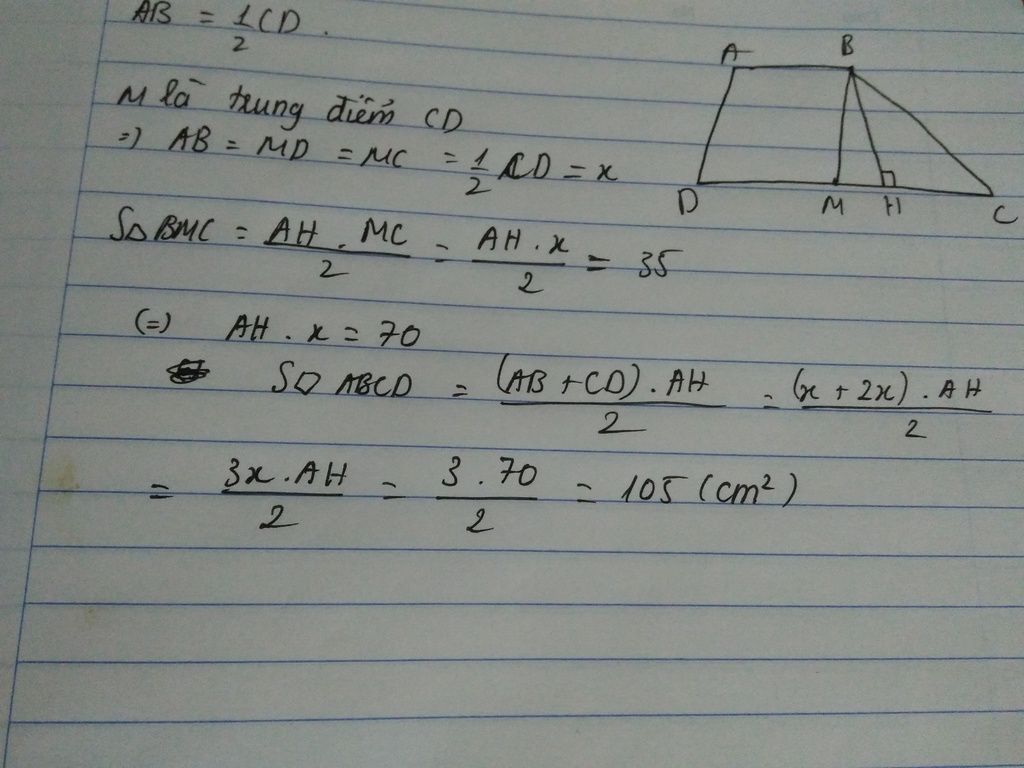 AB = 1/2 CD.
M là trung điểm CD
=) AB = MD = MC = 1/2 CD = x
S△BMC = AH . MC / 2 = AH . x / 2 = 35
(=) AH . x = 70
S▱ ABCD = (AB + CD) . AH / 2 = (x + 2x) . AH / 2
= 3x . AH / 2 = 3 . 70 / 2 = 105 (cm²)
A B
D M H C